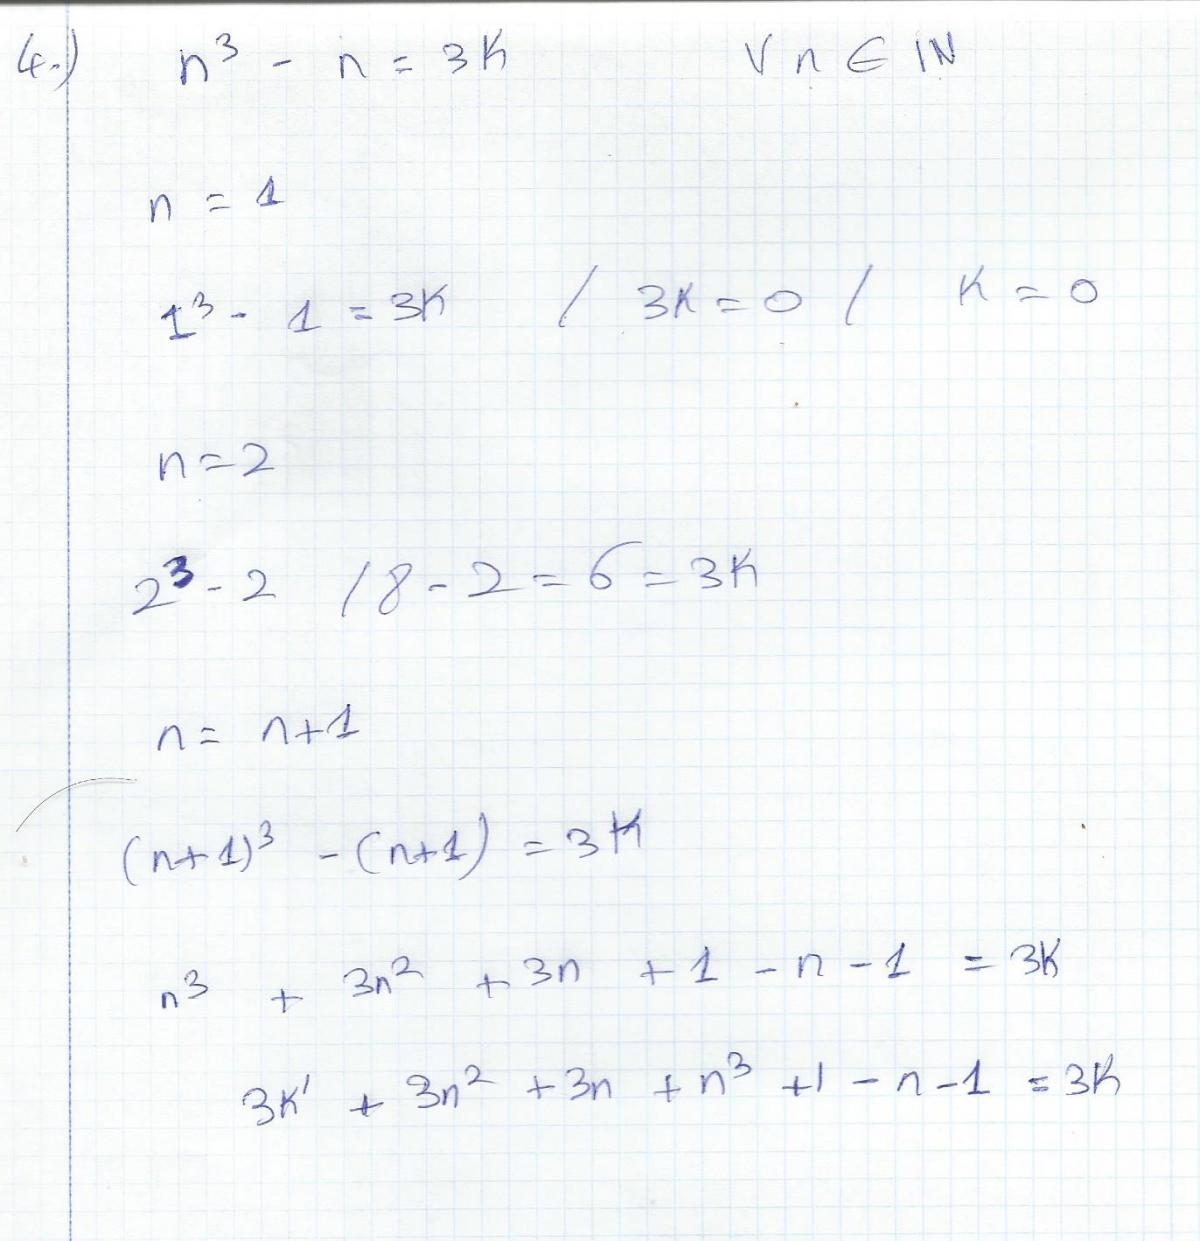 4.) n³ - n = 3K ∀ n ∈ IN
n = 1
1³ - 1 = 3K / 3K = 0 / K = 0
n = 2
2³ - 2 / 8 - 2 = 6 = 3K
n = n+1
(n+1)³ - (n+1) = 3K
n³ + 3n² + 3n + 1 - n - 1 = 3K
3K' + 3n² + 3n + n³ + 1 - n - 1 = 3K